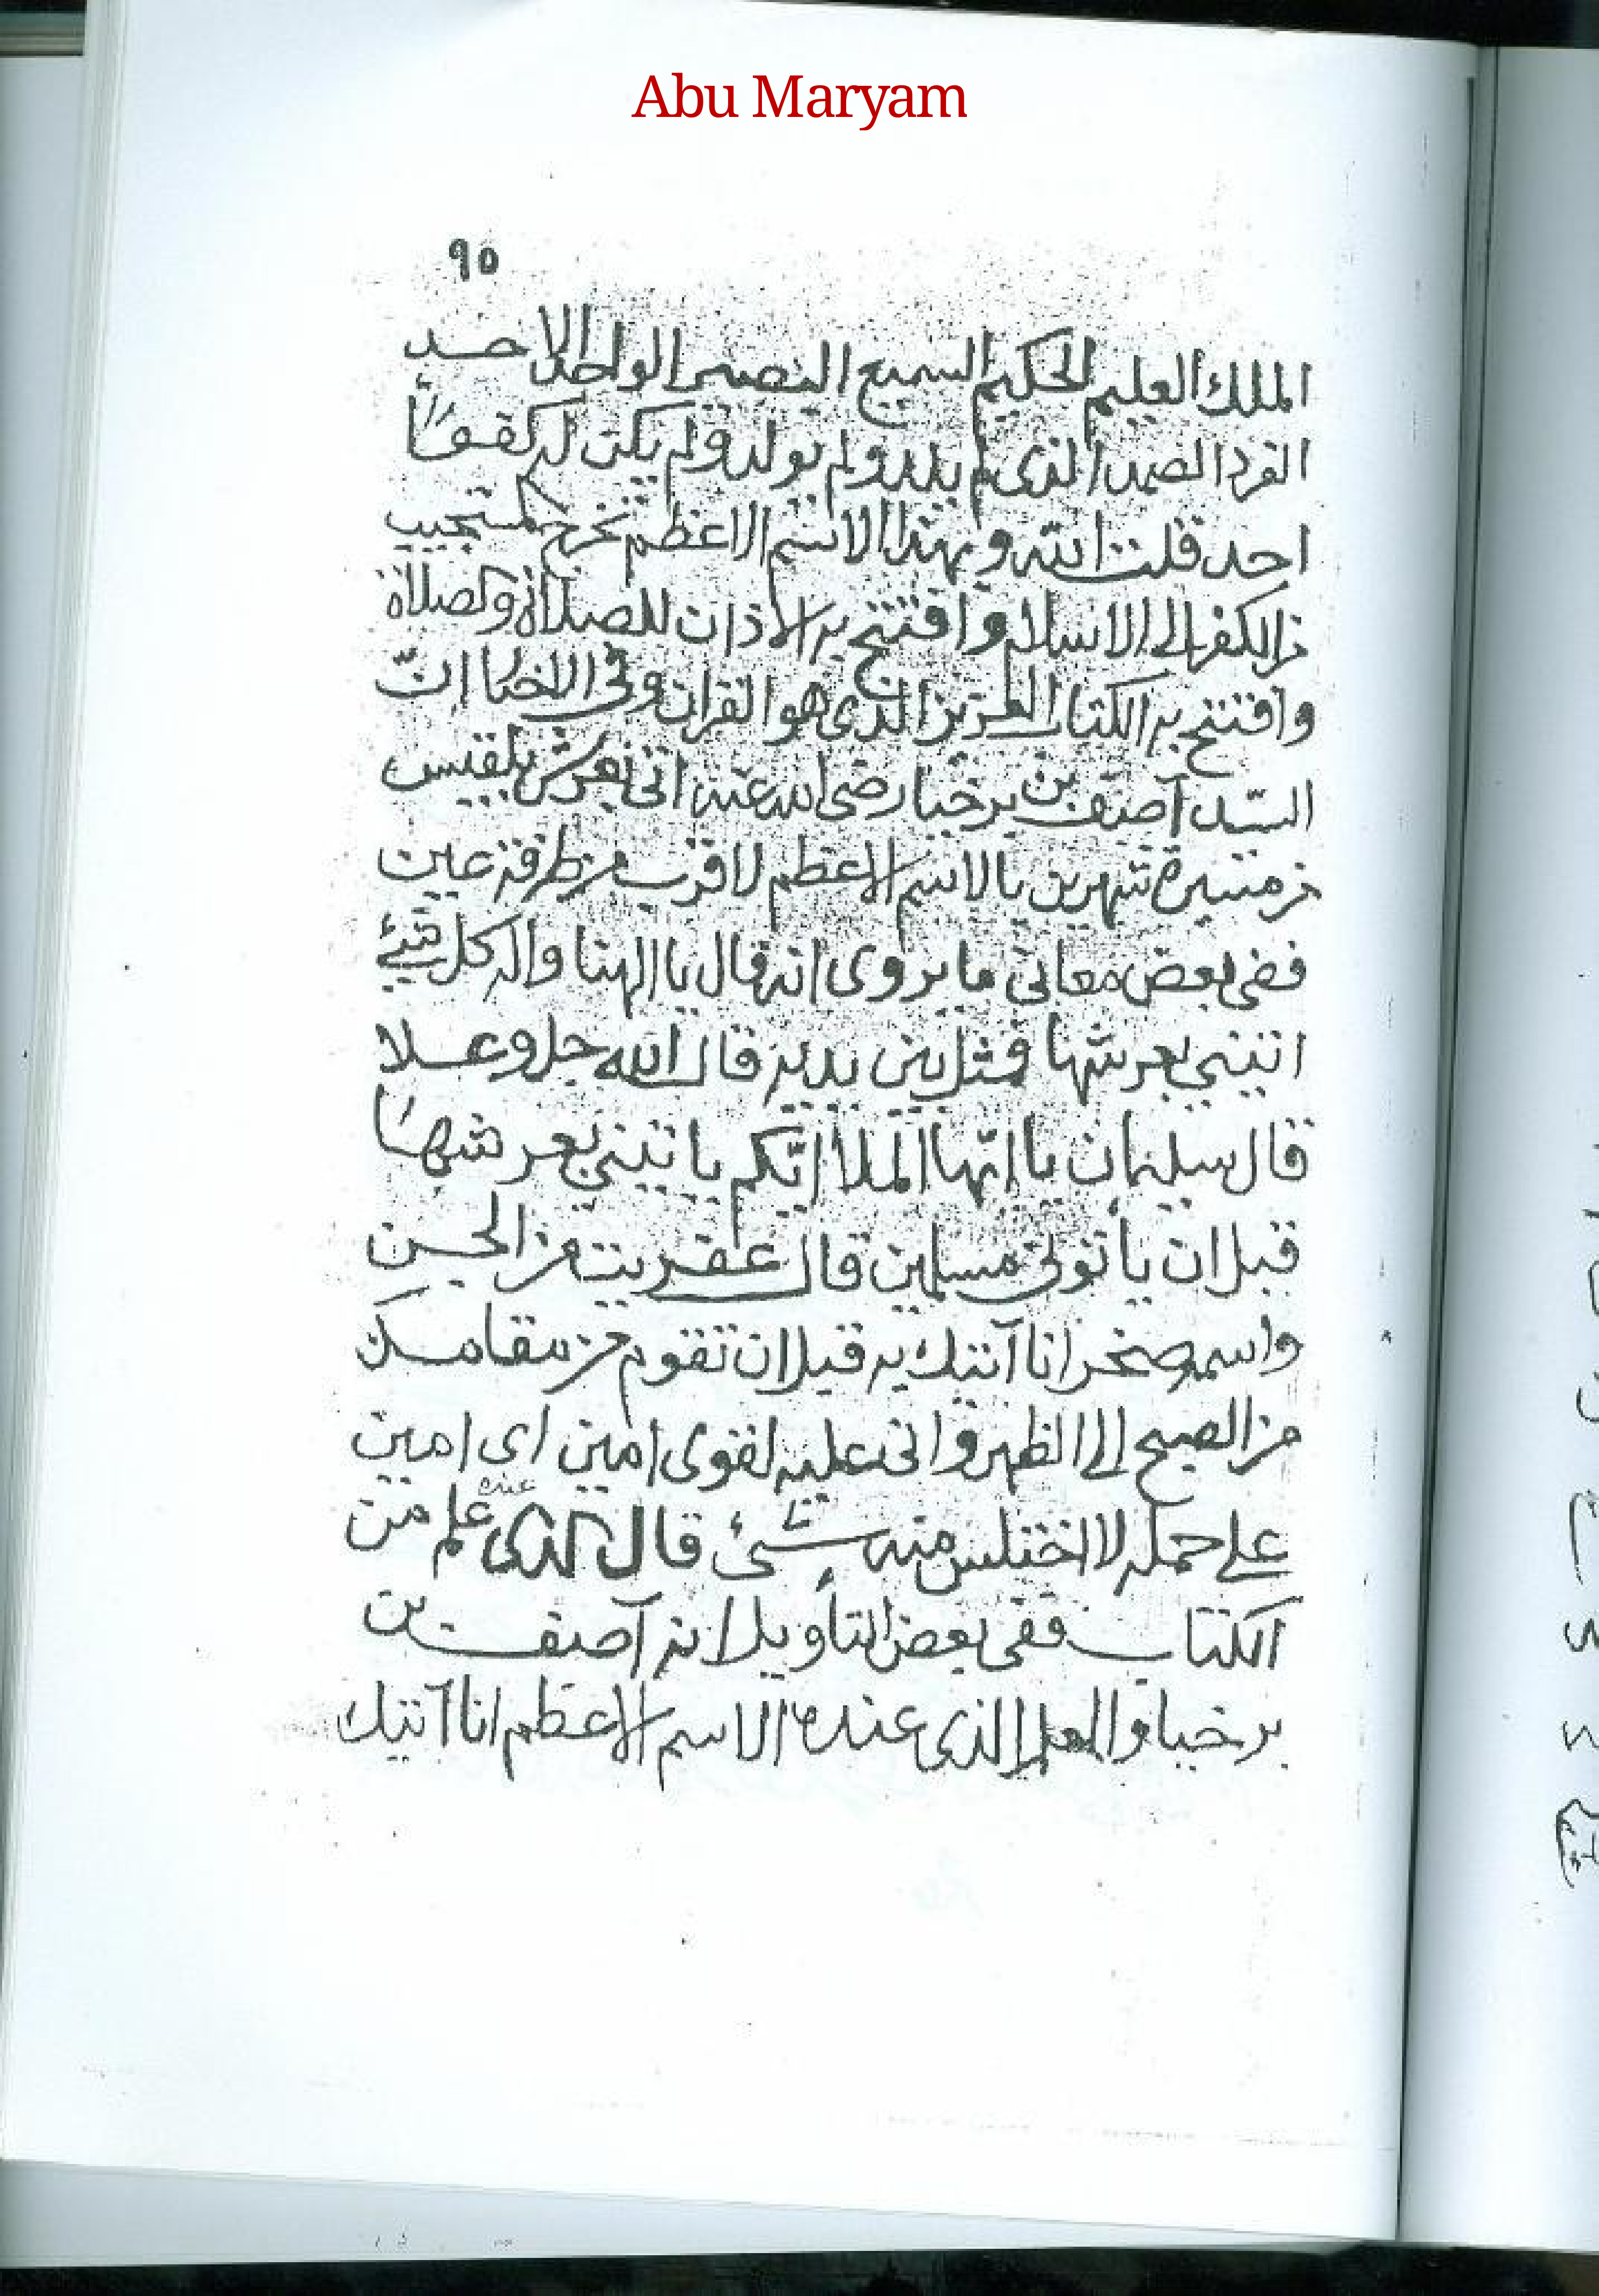 Abu Maryam
٩٥
الملك العليم الحكيم السميع البصير الواحد الاحد
الفرد الصمد الذى لم يلد ولم يولد ولم يكن له كفوًا
احد قلت الله وبهذا الاسم الاعظم تخرج المستجيب
من الكفر الى الاسلام وافتتح به الاذان للصلاة والصلاة
وافتتح به الكتاب العزيز الذى هو القران وفى الاخبار انّ
السيّد آصف بن برخيا رضى الله عنه اتى بعرش بلقيس
من مسيرة شهرين بالاسم الاعظم لاقرب من طرفة عين
ففى بعض معانى ما يروى انه قال يا الهنا واله كل شيئ
اتينى بعرشها فمثل بين يديه قال الله جل وعلا
قال سليمان يا ايّها الملا ايّكم ياتينى بعرشها
قبل ان يأتونى مسلمين قال عفريت من الجن
واسمه صخر انا آتيك به قبل ان تقوم من مقامك
من الصبح الى الظهر وانى عليه لقوى امين اى امين
على حمله لا اختلس منه شيئ قال الذى عنده علم من
الكتاب ففى بعض التأويل انه آصف بن
برخيا والعلم الذى عنده الاسم الاعظم انا آتيك